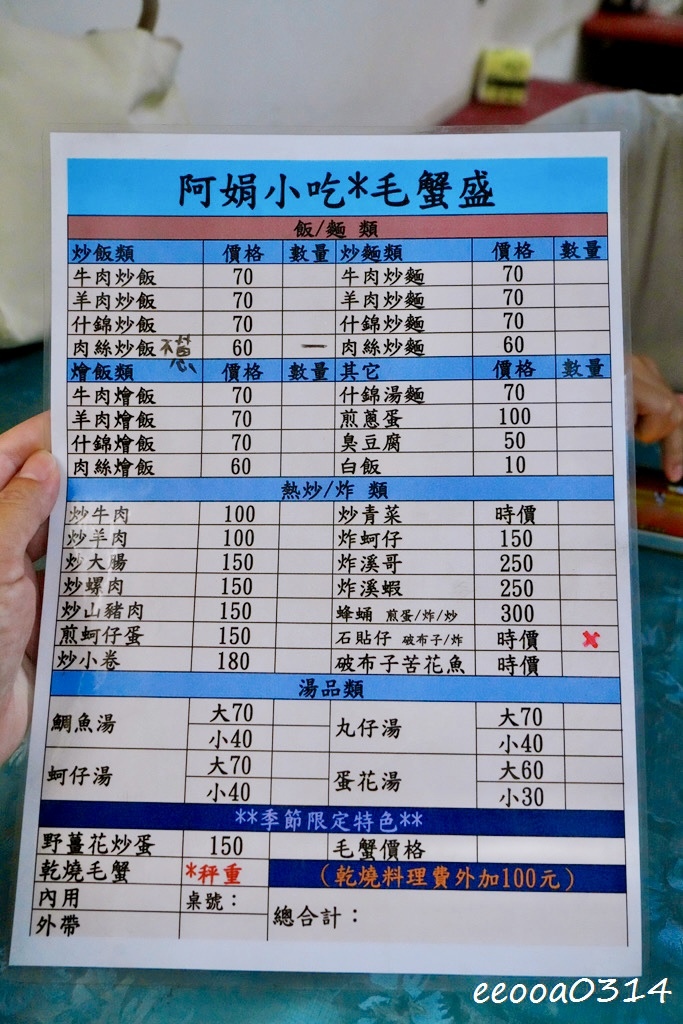 阿娟小吃*毛蟹盛
飯/麵 類
炒飯類 價格 數量 炒麵類 價格 數量
牛肉炒飯 70 牛肉炒麵 70
羊肉炒飯 70 羊肉炒麵 70
什錦炒飯 70 什錦炒麵 70
肉絲炒飯 不蔥 60 一 肉絲炒麵 60
燴飯類 價格 數量 其它 價格 數量
牛肉燴飯 70 什錦湯麵 70
羊肉燴飯 70 煎蔥蛋 100
什錦燴飯 70 臭豆腐 50
肉絲燴飯 60 白飯 10
熱炒/炸 類
炒牛肉 100 炒青菜 時價
炒羊肉 100 炸蚵仔 150
炒大腸 150 炸溪哥 250
炒螺肉 150 炸溪蝦 250
炒山豬肉 150 蜂蛹 煎蛋/炸/炒 300
煎蚵仔蛋 150 石貼仔 破布子/炸 時價 ×
炒小卷 180 破布子苦花魚 時價
湯品類
鯛魚湯 大70 丸仔湯 大70
小40 小40
蚵仔湯 大70 蛋花湯 大60
小40 小30
**季節限定特色**
野薑花炒蛋 150 毛蟹價格
乾燒毛蟹 *秤重 (乾燒料理費外加100元)
內用 桌號：
外帶 總合計：
eeooa0314